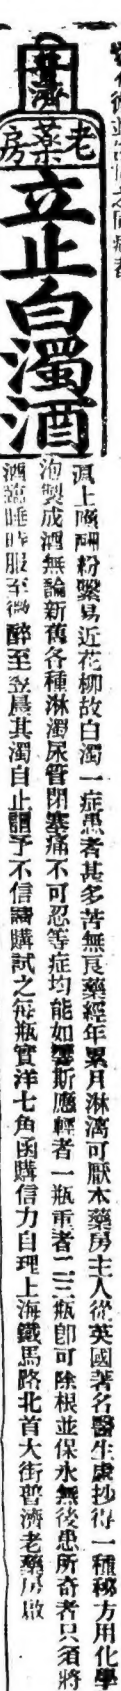 普濟
老藥房
立止白濁酒
滬上隨酬粉黛易近花柳故白濁一症患者甚多苦無良藥經年累月淋漓可厭本藥房主人從英國著名醫生處抄得一種秘方用化學
泡製成酒無論新舊各種淋濁尿管閉塞痛不可忍等症均能如響斯應輕者一瓶重者二三瓶卽可除根並保永無後患所奇者只須將
酒臨睡時服至微醉至翌晨其濁自止謂予不信請購試之每瓶實洋七角函購信力自理上海鐵馬路北首大街普濟老藥房啟